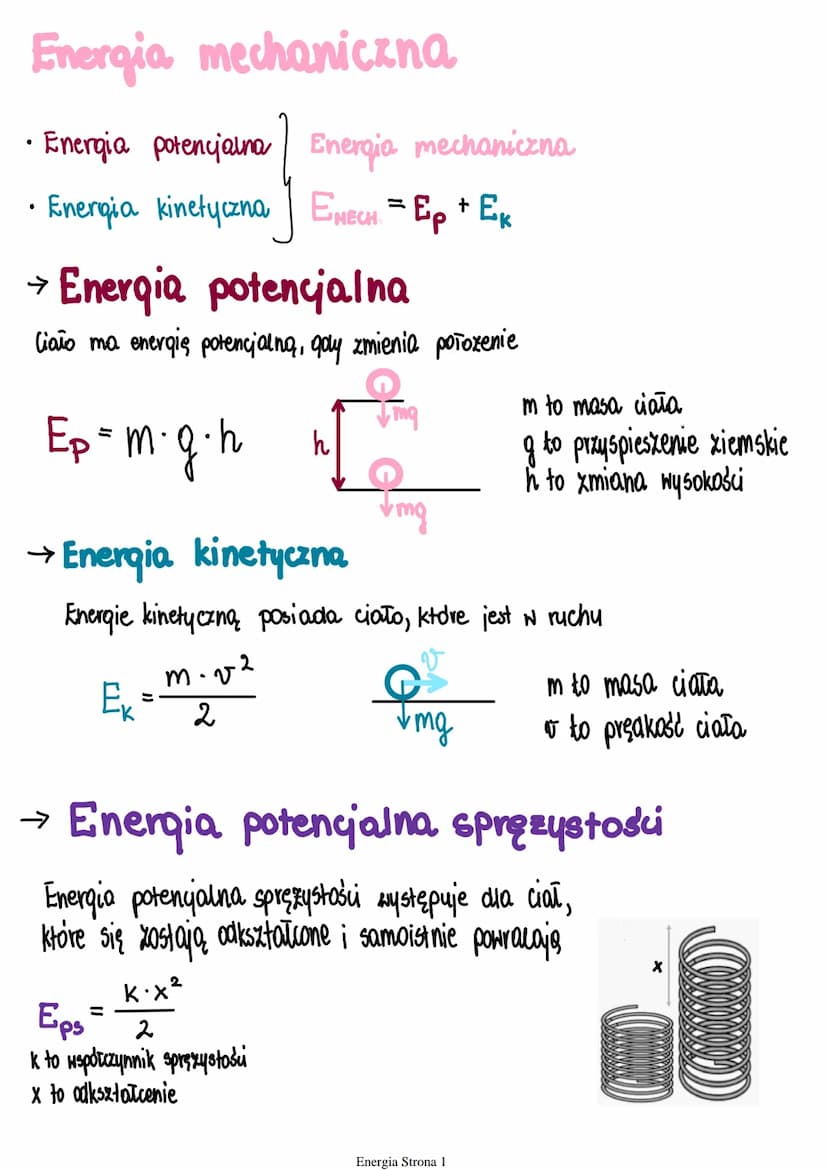 Energia mechaniczna
· Energia potencjalna } Energia mechaniczna
· Energia kinetyczna E_MECH. = E_p + E_k
→ Energia potencjalna
Ciało ma energię potencjalną, gdy zmienia położenie
E_p = m · g · h
h
mg
mg
m to masa ciała
g to przyspieszenie ziemskie
h to zmiana wysokości
→ Energia kinetyczna
Energie kinetyczną posiada ciało, które jest w ruchu
E_k = m · v² / 2
v
mg
m to masa ciała
v to prędkość ciała
→ Energia potencjalna sprężystości
Energia potencjalna sprężystości występuje dla ciał,
które się zostają odkształcone i samoistnie powracają
E_ps = k · x² / 2
k to współczynnik sprężystości
x to odkształcenie
x
Energia Strona 1